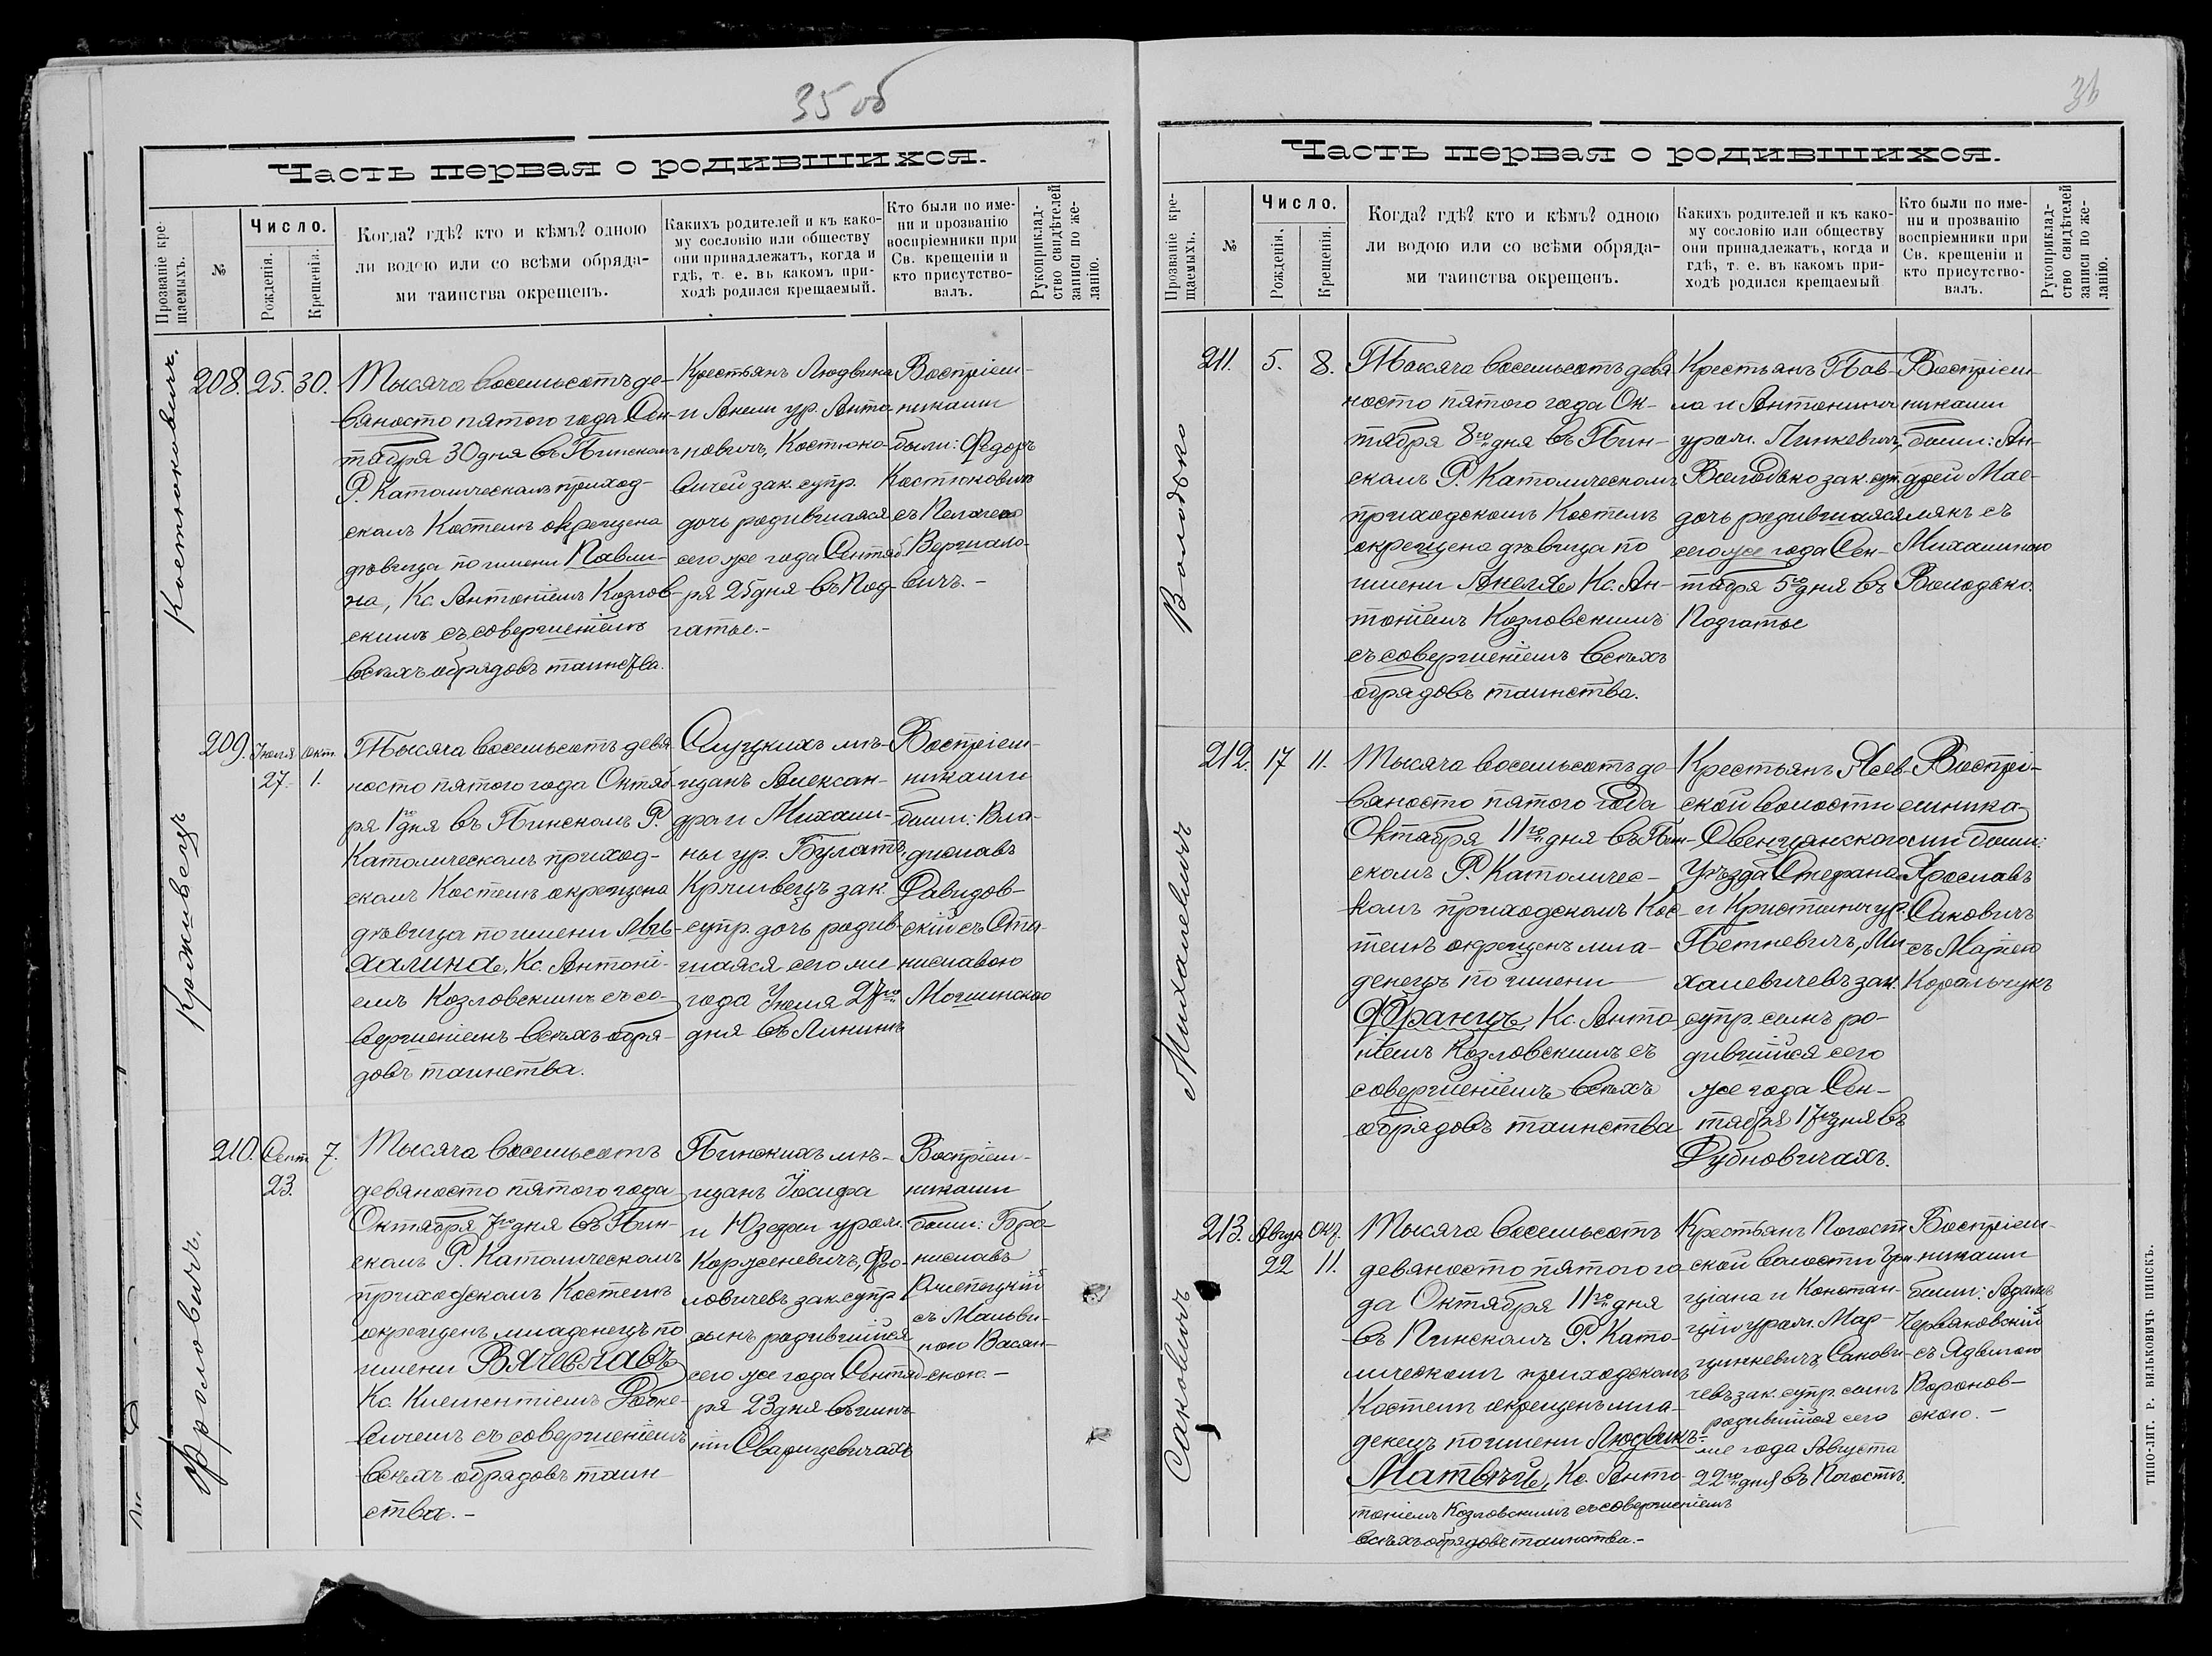 35 об
Часть первая о родившихся.
Прозваніе кре-
щаемыхъ.
№
Число.
Рожденія.
Крещенія.
Когда? гдѣ? кто и кѣмъ? одною
ли водою или со всѣми обряда-
ми таинства окрещенъ.
Какихъ родителей и къ како-
му сословію или обществу
они принадлежатъ, когда и
гдѣ, т. е. въ какомъ при-
ходѣ родился крещаемый.
Кто были по име-
ни и прозванію
воспріемники при
Св. крещеніи и
кто присутство-
валъ.
Рукоприклад-
ство свидѣтелей
записи по же-
ланію.
Костюковичъ.
208. 25. 30.
Тысяча восемьсотъ де-
вяносто пятого года Сен-
тября 30 дня въ Пинскомъ
Р. Католическомъ приход-
скомъ Костелѣ окрещена
дѣвица по имени Павли-
на, Кс. Антоніемъ Козлов-
скимъ съ совершеніемъ
всѣхъ обрядовъ таинства.
Крестьянъ Людвика
и Анели ур. Анто-
новичъ, Костюко-
вичей зак. супр.
дочь родившаяся
сего же года Сентяб-
ря 25 дня въ Под-
гатье.-
Воспріем-
никами
были: Федоръ
Костюковичъ
съ Пелагею
Вергило-
вичъ.-
Крживецъ
209. Іюля 27. Окт. 1.
Тысяча восемьсотъ девя-
носто пятого года Октяб-
ря 1го дня въ Пинскомъ Р.
Католическомъ приход-
скомъ Костелѣ окрещена
дѣвица по имени Ми-
халина, Кс. Антоні-
емъ Козловскимъ съ со-
вершеніемъ всѣхъ обря-
довъ таинства.
Слуцкихъ мѣ-
щанъ Алексан-
дра и Михали-
ны ур. Булатъ,
Крживецъ зак.
супр. дочь родив-
шаяся сего же
года Іюля 27го
дня въ Лининѣ
Воспріем-
никами
были: Вла-
диславъ
Давидов-
скій съ Ста-
ниславою
Фроловичъ.
210. Сент. 23. 7.
Тысяча восемьсотъ
девяносто пятого года
Октября 7го дня въ Пин-
скомъ Р. Католическомъ
приходскомъ Костелѣ
окрещенъ младенецъ по
имени Вячеславъ
Кс. Климентіемъ
вичемъ съ совершеніемъ
всѣхъ обрядовъ таин-
ства.-
Пинскихъ мѣ-
щанъ Іосифа
и Юзефы урож.
Корженевичъ, Фро-
ловичевъ зак. супр.
сынъ родившійся
сего же года Сентяб-
ря 23 дня въ имѣ-
ніи Сварицевичахъ
Воспріем-
никами
были: Бро-
ниславъ
съ Мальви-
ною Васил-
скою.-
36
Часть первая о родившихся.
Прозваніе кре-
щаемыхъ.
№
Число.
Рожденія.
Крещенія.
Когда? гдѣ? кто и кѣмъ? одною
ли водою или со всѣми обряда-
ми таинства окрещенъ.
Какихъ родителей и къ како-
му сословію или обществу
они принадлежатъ, когда и
гдѣ, т. е. въ какомъ при-
ходѣ родился крещаемый
Кто были по име-
ни и прозванію
воспріемники при
Св. крещеніи и
кто присутство-
валъ.
Рукоприклад-
ство свидѣтелей
записи по же-
ланію.
Володько
211. 5. 8.
Тысяча восемьсотъ девя-
носто пятого года Ок-
тября 8го дня въ Пин-
скомъ Р. Католическомъ
приходскомъ Костелѣ
окрещена дѣвица по
имени Анеля Кс. Ан-
тоніемъ Козловскимъ
съ совершеніемъ всѣхъ
обрядовъ таинства.
Крестьянъ Пав-
ла и Антонины
урож. Линкевичъ,
Володько зак. супр.
дочь родившаяся
сего же года Сен-
тября 5го дня въ
Подгатье
Воспріем-
никами
были: Ан-
дрей Мае-
лякъ съ
Михалиною
Володько.
Михалевичъ
212. 17 11.
Тысяча восемьсотъ де-
вяносто пятого года
Октября 11го дня въ Пин-
скомъ Р. Католичес-
комъ приходскомъ Кос-
телѣ окрещенъ мла-
денецъ по имени
Францъ, Кс. Анто-
ніемъ Козловскимъ съ
совершеніемъ всѣхъ
обрядовъ таинства
Крестьянъ Ясев-
ской волости
Свенцянского
Уѣзда Стефана
и Кристины ур.
Петкевичъ, Ми-
халевичевъ зак.
супр. сынъ ро-
дившійся сего
же года Сен-
тября 17го дня въ
Дубновичахъ.
Воспрі-
емника-
ми были:
Ярославъ
Саковичъ
съ Маріею
Коральчукъ
Саковичъ
213. Август 22 Окт. 11.
Тысяча восемьсотъ
девяносто пятого го-
да Октября 11го дня
въ Пинскомъ Р. Като-
лическомъ приходскомъ
Костелѣ окрещенъ мла-
денецъ по имени Людвикъ-
Матвѣй, Кс. Анто-
тоніемъ Козловскимъ съ совершеніемъ
всѣхъ обрядовъ таинства.-
Крестьянъ Погост-
ской волости Ѱри-
ціана и Констан-
ціи урож. Мар-
цинкевичъ Сакови-
чевъ зак. супр. сынъ
родившійся сего
же года Августа
22го дня въ Погостѣ.
Воспріем-
никами
были: Адамъ
Червяковскій
съ Ядвигою
Воронов-
скою.-
ТИПО-ЛИТ. Р. ВИЛЬКОВИЧЪ ПИНСКЪ.